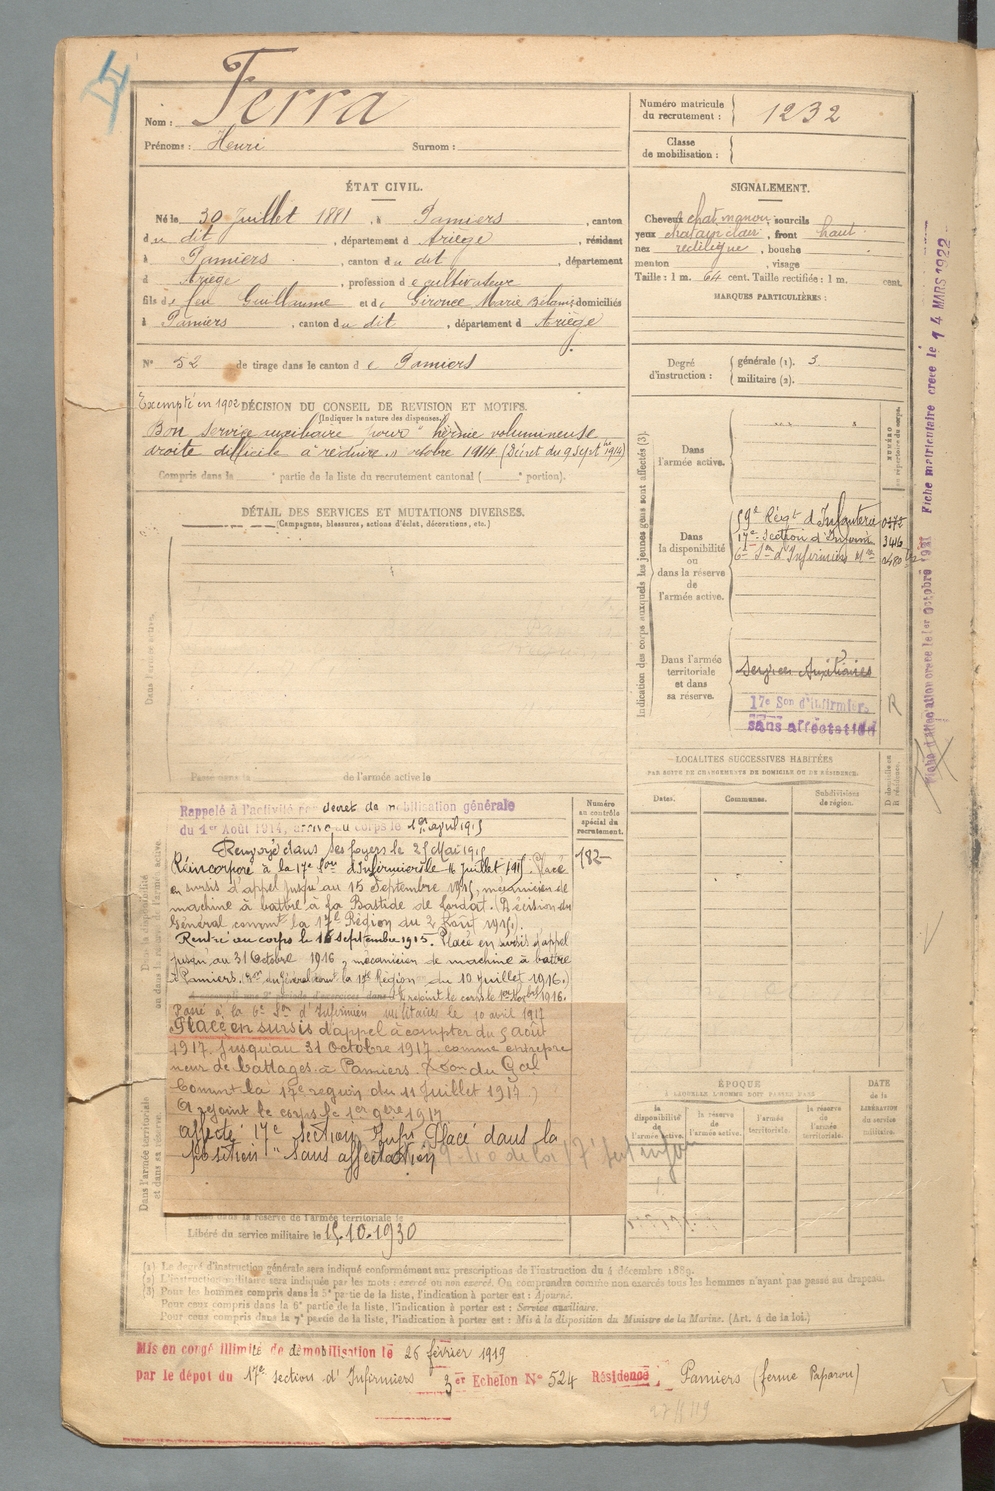 Nom : Ferra
Prénoms : Henri Surnom :
Numéro matricule du recrutement : 1232
Classe de mobilisation :
ÉTAT CIVIL.
Né le 30 Juillet 1881, à Pamiers, canton
du dit, département d Ariège, résident
à Pamiers, canton du dit, département
d Ariège, profession de cultivateur
fils de feu Guillaume et de Gironce Marie domiciliés
à Pamiers, canton du dit, département d Ariège
N° 52 de tirage dans le canton de Pamiers
SIGNALEMENT.
Cheveux chat sourcils
yeux chatain clair, front haut
nez rectiligne, bouche
menton, visage
Taille : 1 m. 64 cent. Taille rectifiée : 1 m. cent.
MARQUES PARTICULIÈRES :
Degré d'instruction : générale (1). 3
militaire (2).
Exempté en 1902 DÉCISION DU CONSEIL DE REVISION ET MOTIFS.
(Indiquer la nature des dispenses)
Bon service auxiliaire pour "hernie volumineuse
droite difficile à réduire" octobre 1914 (Décret du 9 Septbre 1914)
Compris dans la e partie de la liste du recrutement cantonal ( e portion).
DÉTAIL DES SERVICES ET MUTATIONS DIVERSES.
(Campagnes, blessures, actions d'éclat, décorations, etc.)
Dans l'armée active.
Passé dans la de l'armée active le
Indication des corps auxquels les jeunes gens sont affectés (3)
NUMÉRO au répertoire du corps.
Dans l'armée active.
Dans la disponibilité ou dans la réserve de l'armée active.
59e Régt d'Infanterie
17e Section d'Infirm 3416
6e Son d'Infirmiers Mres
Dans l'armée territoriale et dans sa réserve.
Services Auxiliaires
17e Son d'infirmiers
sans affectation
R
LOCALITÉS SUCCESSIVES HABITÉES
PAR SUITE DE CHANGEMENTS DE DOMICILE OU DE RÉSIDENCE.
Dates. Communes. Subdivisions de région. D domicile ou R résidence.
Numéro au contrôle spécial du recrutement.
182
Dans la disponibilité ou dans la réserve de l'armée active.
Rappelé à l'activité decret de mobilisation générale
du 1er Août 1914, arrivé au corps le avril 1915
Renvoyé dans ses foyers le 25 Mai 1915
Réincorporé à la 17e Son d'Infirmiers le 16 Juillet 1915. Placé
en sursis d'appel jusqu'au 15 Septembre 1915, mécanicien de
machine à battre à La Bastide de Lordat. Décision du
Général commt la 17e Région du 2 Août 1915.
Rentré au corps le 16 septembre 1915. Placé en sursis d'appel
jusqu'au 31 Octobre 1916, mécanicien de machine à battre
à Pamiers. du Général comt la 17e Région du 10 juillet 1916.)
A rejoint le corps le 1er Novbre 1916.
Passé à la 6e Son d'Infirmiers militaires le 10 avril 1917
Placé en sursis d'appel à compter du 5 août
1917 jusqu'au 31 Octobre 1917 comme entrepre
neur de battages à Pamiers. Don du Gal
Commt la 17e région du 11 Juillet 1917)
A rejoint le corps le 1er 9bre 1917
Affecté 17e section Infrs Placé dans la
position "sans affectation
Dans l'armée territoriale et dans sa réserve.
Passé dans la réserve de l'armée territoriale le
Libéré du service militaire le 15.10.1930
ÉPOQUE
À LAQUELLE L'HOMME DOIT PASSER DANS
la disponibilité de l'armée active. la réserve de l'armée active. l'armée territoriale. la réserve de l'armée territoriale.
DATE de la LIBÉRATION du service militaire.
(1) Le degré d'instruction générale sera indiqué conformément aux prescriptions de l'instruction du 4 décembre 1889.
(2) L'instruction militaire sera indiquée par les mots : exercé ou non exercé. On comprendra comme non exercés tous les hommes n'ayant pas passé au drapeau.
(3) Pour les hommes compris dans la 5e partie de la liste, l'indication à porter est : Ajourné.
Pour ceux compris dans la 6e partie de la liste, l'indication à porter est : Service auxiliaire.
Pour ceux compris dans la 7e partie de la liste, l'indication à porter est : Mis à la disposition du Ministre de la Marine. (Art. 4 de la loi.)
Mis en congé illimité de démobilisation le 26 février 1919
par le dépot du 17e section d'Infirmiers 3er Echelon N° 524 Résidence Pamiers (ferme Paparou)
Fiche matriculaire créée le 14 MARS 1922